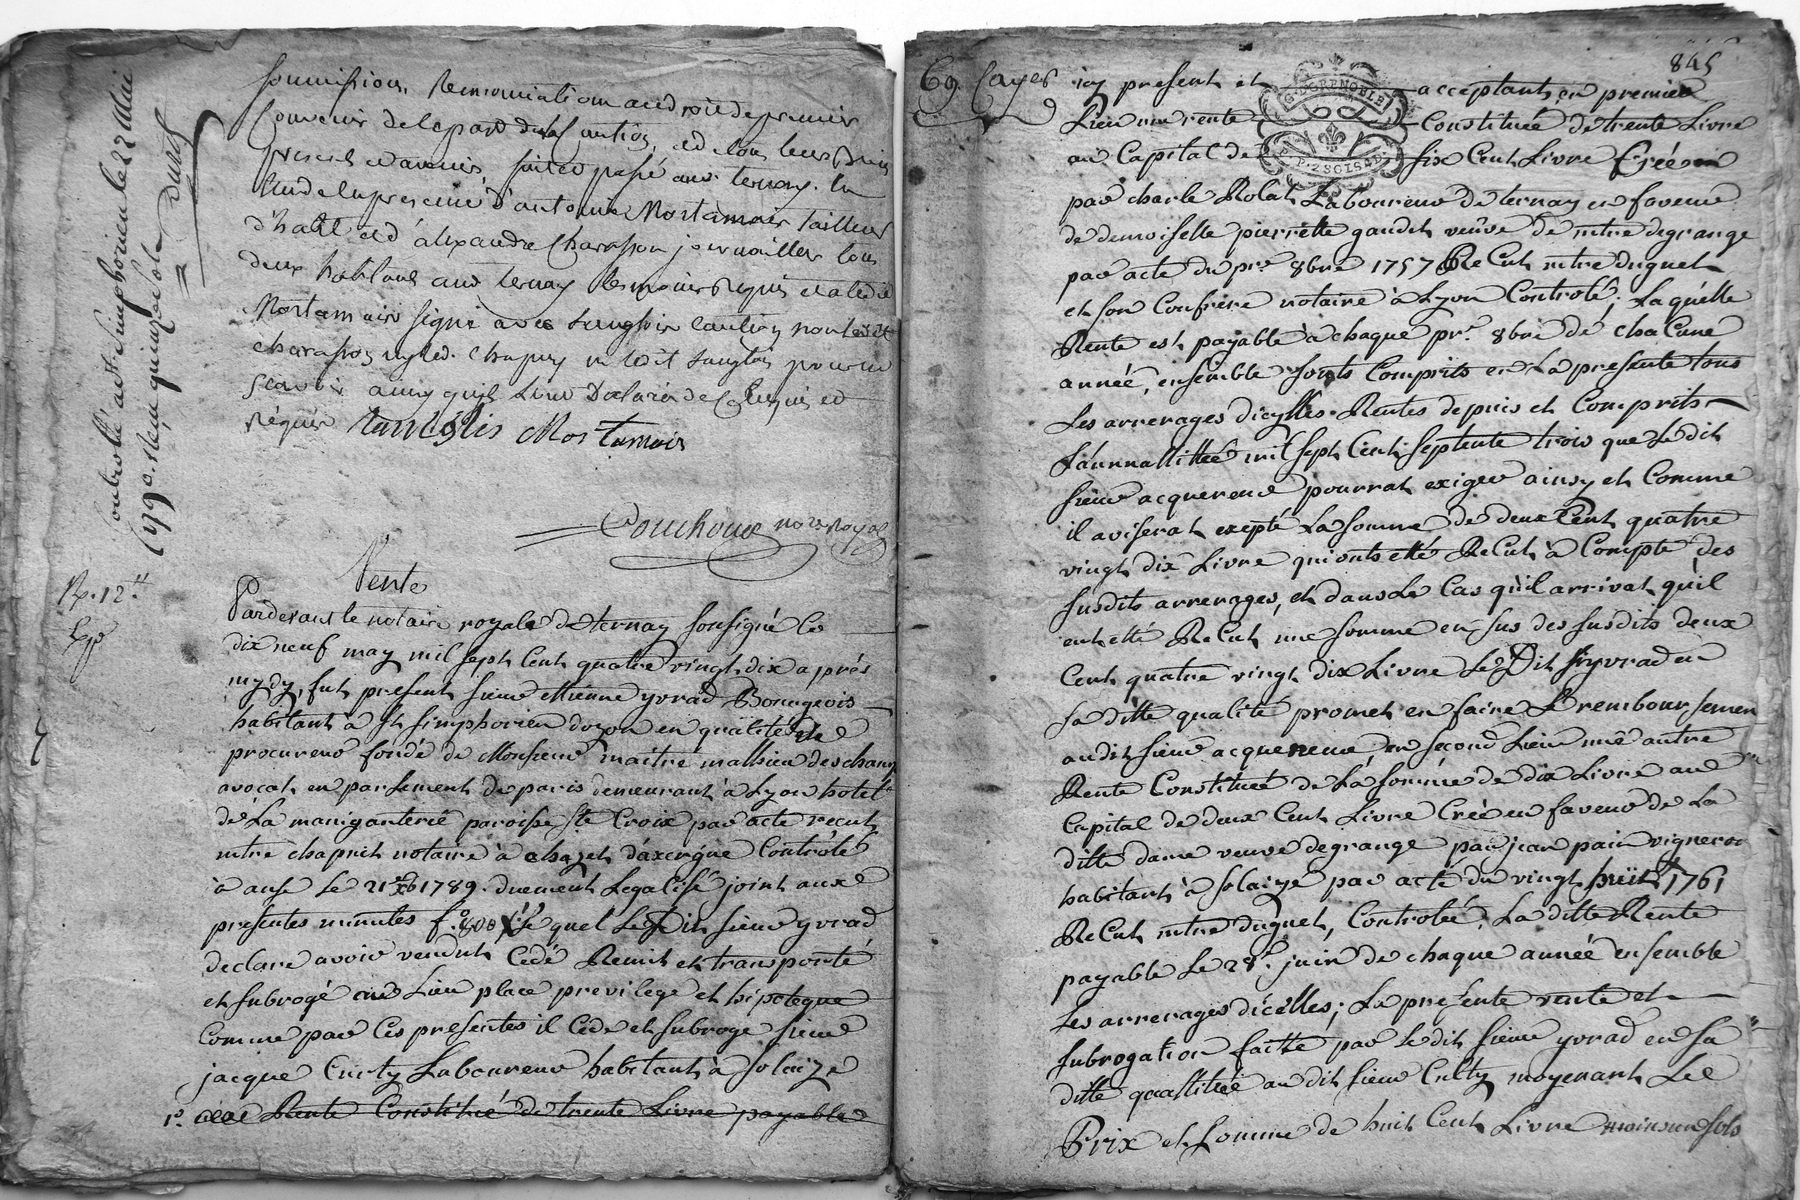 soumission, Renonciation au droit de premier
Convenir de la part du Caution, et de tous leurs Biens
presents et avenir, fait et passé aux ternay.
Etude en presence d'antoine Mortamais Tailleur
d'habit et d'alexandre Charasson journaillier tous
deux habitans aux ternay temoins Requis et a ledit
Mortamais signé avec Langlois Caution non ledit
charasson Langlois pour ne
scavoir ainsy quils Lont Declaré de Ce Enquis et
Réquis Langlois Mortamais
Couchoud nore Royal
Controllé à st Simphorien le 22 dud
1790. Reçu quinze sols
R. 12tt
Exp
Vente
Pardevant le notaire royale de ternay soussigné le
dix neuf may mil sept Cent quatre vingt dix aprés
mydy, fut present sieur etienne yvrad Bourgeois
habitant à St simphorien dozon en qualité de
procureur fondé de Monsieur maître mathieu deschamp
avocat en parlement de paris demeurant à Lyon hotel
de La manganterie paroisse Ste Croix par acte recut
mtre chapuit notaire à chazet d'axergue Controlé
à anse le 21 xb 1789. duement Legalisé joint aux
presentes minutes f.o 808 Le quel Ledit sieur yvrad
declare avoir vendut Cédé Remit et transporté
et subrogé aux Lieu place previlege et hipoteque
Comme par Ces presentes il Cede et subroge sieur
jacque Culty Laboureur habitant à solaize
1o. une Rente Constitué de trente Livre payable
845
69 Cayer
GRENOBLE
P.P. 2 SOLS 4 D
icy present et acceptant, en premier
Lieu une rente Constituée de trente Livre
au Capital de six Cent Livre Créé
par charle Rolat Laboureur de ternay en faveur
de demoiselle pierrette gaudet veuve de mtre degrange
par acte du pr. 8bre 1757 ReCut mtre duguet
et son Confrere notaire à Lyon Controlé; La quelle
Rente est payable à chaque pr. 8bre de chaCune
année, ensemble sonts Comprits en La presente tous
Les arrerages d'icylles Rentes depuis et Comprits
L'annuallitée mil sept Cent septente trois que Ledit
sieur acquereur pourrat exiger ainsy et Comme
il aviserat, exepté La somme de deux Cent quatre
vingt dix Livre qui onts etté ReCut à Compte des
susdits arrerages, et dans Le Cas qu'il arrivat qu'il
eut etté ReCut une somme en sus des susdits deux
Cent quatre vingt dix Livre Ledit sr yvrad en
sa ditte qualité promet en faire Le remboursement
audit sieur acquereur en second Lieu une autre
Rente Constituée de La somme de dix Livre au
Capital de deux Cent Livre Créé en faveur de La
ditte dame veuve degrange par jean pain vigneron
habitant à solaize par acte du vingt huit 1761
ReCut mtre duguet, Controlée. La ditte Rente
payable Le 28e. juin de chaque année ensemble
Les arrerages d'icelles; La presente vente et
subrogation faitte par Ledit sieur yvrad en sa
ditte quallitée audit sieur Culty moyenant Le
Prix et somme de huit Cent Livre moins un sols